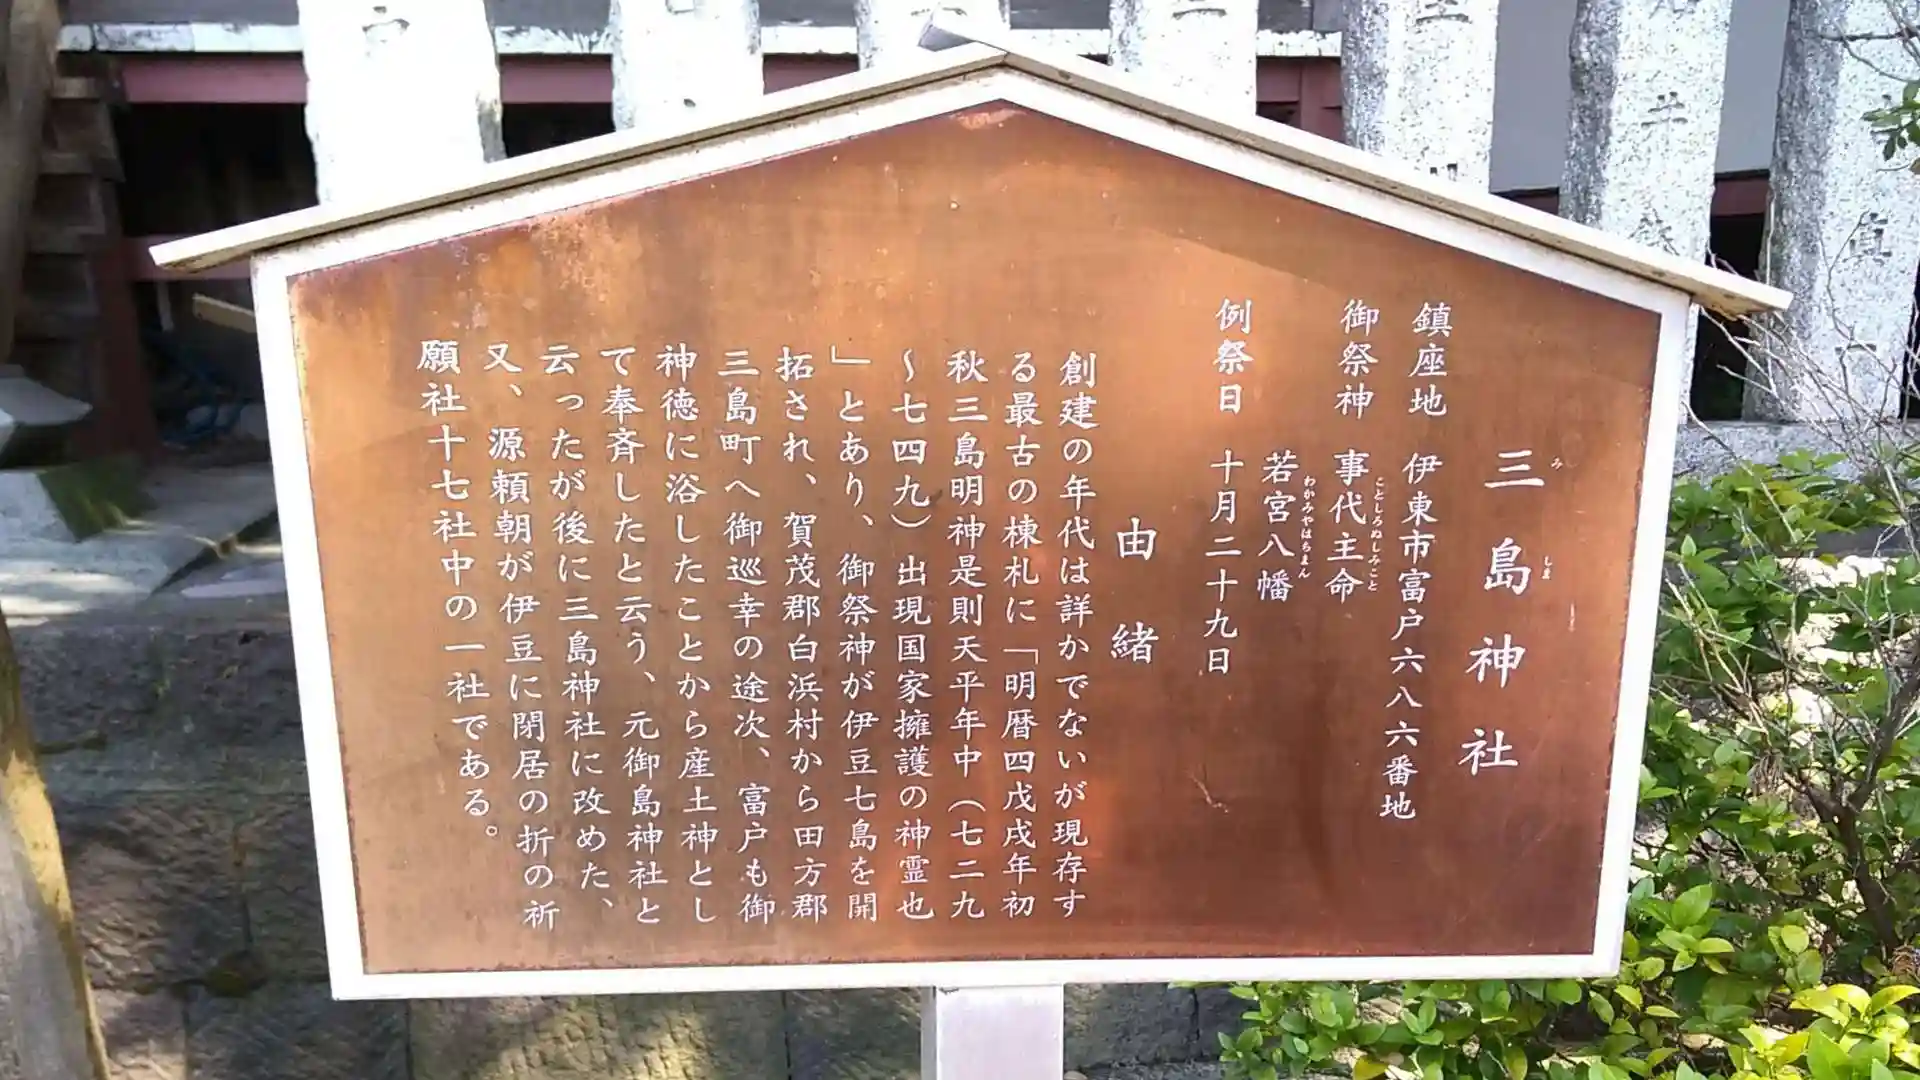 三島神社
み
しま
鎮座地 伊東市富戸六八六番地
御祭神 事代主命
ことしろぬしみこと
若宮八幡
わかみやはちまん
例祭日 十月二十九日
由緒
創建の年代は詳かでないが現存す
る最古の棟札に「明暦四戊戌年初
秋三島明神是則天平年中（七二九
～七四九）出現国家擁護の神霊也
」とあり、御祭神が伊豆七島を開
拓され、賀茂郡白浜村から田方郡
三島町へ御巡幸の途次、富戸も御
神徳に浴したことから産土神とし
て奉斉したと云う、元御島神社と
云ったが後に三島神社に改めた、
又、源頼朝が伊豆に閉居の折の祈
願社十七社中の一社である。